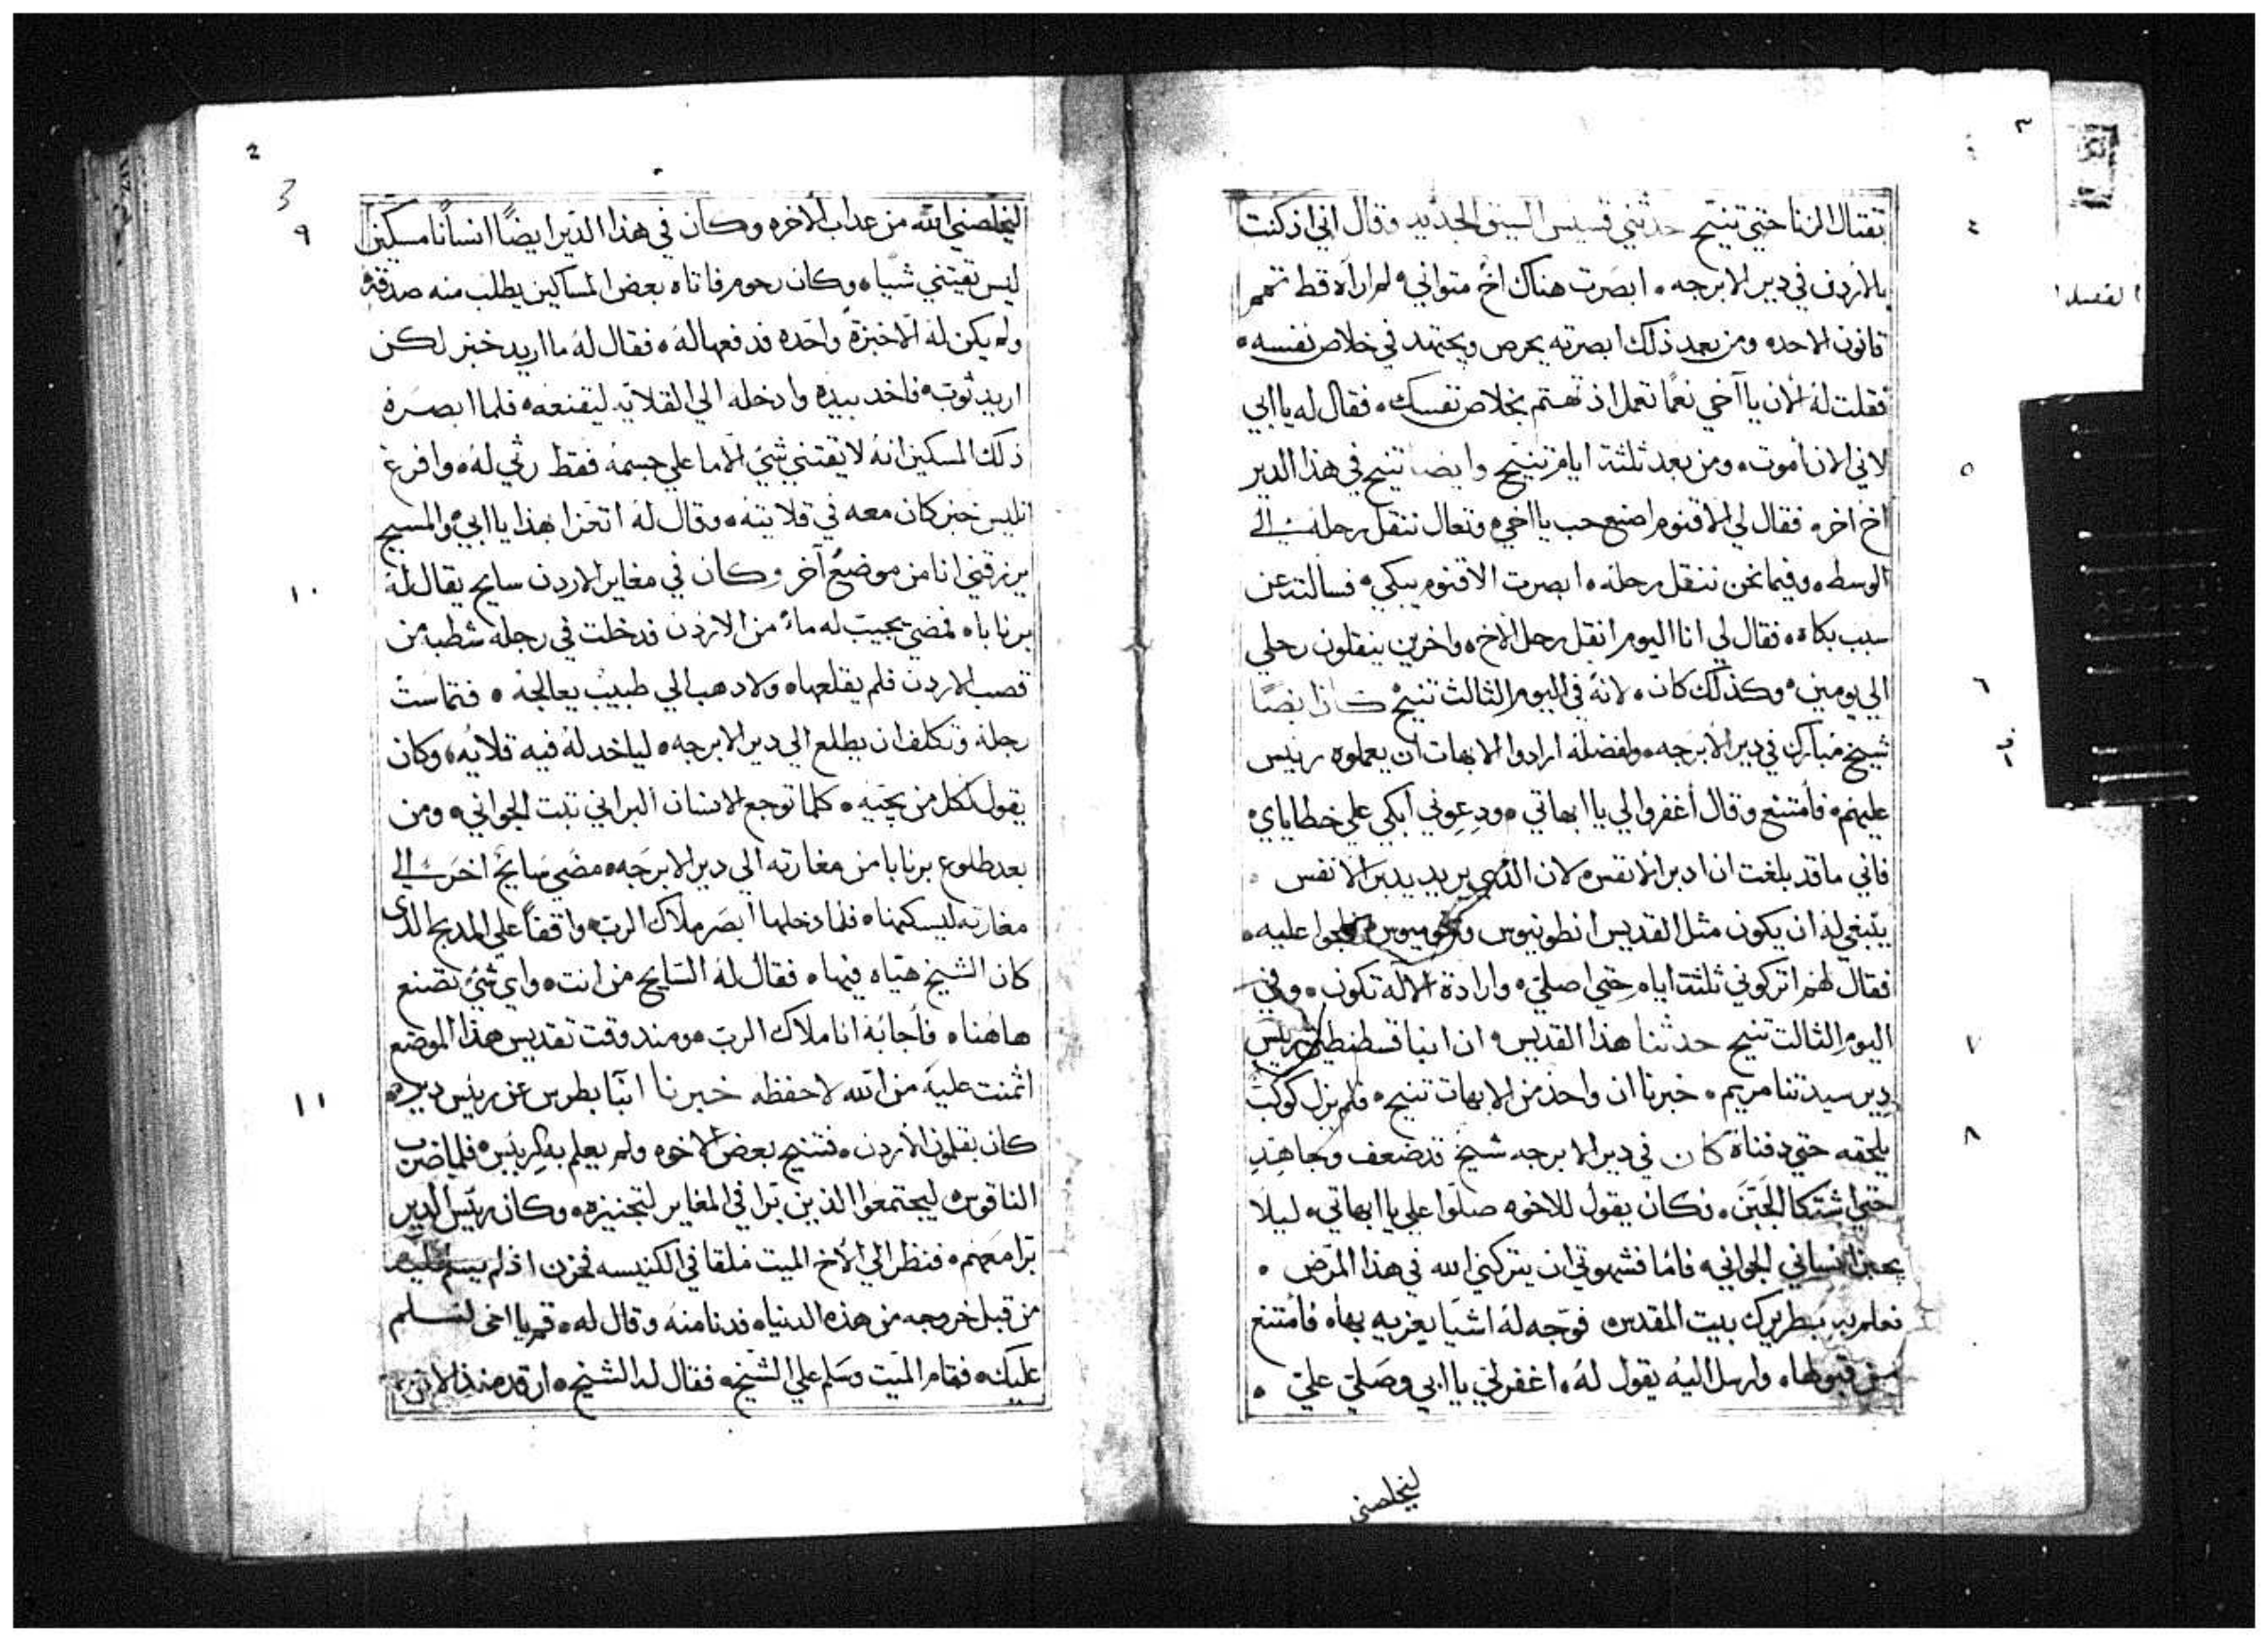 ٣
تقتال الزنا حتي تنيح حدثني قسيس السيق الجديد وقال اني اذ كنت
بالأردن في دير الابرجه ٠ ابصرت هناك اخ متواني لم اراه قط تمم
قانون الاحده ومن بعد ذلك ابصرته يحرص ويجتهد في خلاص نفسه ٠
فقلت له الان يا آخي نعمًا تعمل اذ تهتم بخلاص نفسك ٠ فقال له يا ابي
لاني الان أموت ٠ ومن بعد ثلثة ايام تنيح وايضا تنيح في هذا الدير
اخ اخر ٠ فقال لي الاقنوم اصنع حب يا اخي ٠ وتعال ننقل رحله الي
الوسط ٠ وفيما نحن ننقل رحله ٠ ابصرت الاقنوم يبكي ٠ فسالته عن
سبب بكاه ٠ فقال لي انا اليوم انقل رحل الاخ ٠ واخرين ينقلون رحلي
الي يومين ٠ وكذلك كان ٠ لانه في اليوم الثالث تنيح كان ايضًا
شيخ مبارك في دير الابرجه ٠ ولفضله ارادوا الابهات ان يعملوه رييس
عليهم ٠ فأمتنع وقال أغفروا لي يا ابهاتي ٠ ودعوني أبكي علي خطاياي
فاني ما قد بلغت ان ادبر الانفس ٠ لان الذي يريد يدبر الانفس ٠
ينبغي له ان يكون مثل القديس انطونيوس عليه ٠
فقال لهم اتركوني ثلثة ايام حتي اصلي ٠ وارادة الاله تكون ٠ وفي
اليوم الثالث تنيح حدثنا هذا القديس ان انبا قسطنطين رييس
دير سيدتنا مريم ٠ خبرنا ان واحد من الابهات تنيح ٠ فلم يزل كوكب
يلحقه حتي دفناة كان في دير الابرجه شيخ قد ضعف وجاهد
حتي اشتكا الجبن ٠ وكان يقول للاخوه صلوا علي يا ابهاتي ٠ ليلا
يجبن انساني الجواني ٠ فاما فشهوتي ان يتركني الله في هذا المرض ٠
فعلم به بطريرك بيت المقدس فوجه له اشيا يعزيه بها ٠ فأمتنع
من قبولها ٠ وارسل اليه يقول له ٠ اغفر لي يا ابي وصلي علي ٠
ليخلصني
٤
٥
٦
٧
٨
2
3
٩
ليخلصني الله من عداب الاخره وكان في هذا الدير ايضًا انسانًا مسكين
ليس تقيتني شياه وكان رحوم فاتاه بعض المساكين يطلب منه صدقة
ولم يكن له الا خبزة واحده فدفعها له ٠ فقال له ما اريد خبز لكن
اريد ثوب ٠ فاخد بيده وادخله الي القلايه ليقنعه ٠ فلما ابصره
ذلك المسكين انه لا يقتني شي الا ما علي جسمه فقط رثي له ٠ وافرغ
خبز كان معه في قلايته ٠ وقال له اتعزا بهذا يا ابي والمسيح
يرزقني انا من موضع آخر وكان في مغاير الاردن سايح يقال له
برنابا ٠ فمضي يجيب له ماء من الاردن فدخلت في رجله شطبه من
قصب الاردن فلم يقلعها ٠ ولا دهب الي طبيب يعالجه ٠ فتماست
رجله وتكلف ان يطلع الي دير الابرجه ٠ لياخد له فيه قلايه ٠ وكان
يقول لكل من يجيه ٠ كلما توجع الانسان البراني تبت الجواني ٠ ومن
بعد طلوع برنابا من مغارته الي دير الابرجه ٠ مضي سايح اخر الي
مغارته ليسكنها ٠ فلما دخلها أبصر ملاك الرب ٠ واقفًا علي المدبح الدي
كان الشيخ هياه فيها ٠ فقال له السايح من انت ٠ واي شي تصنع
هاهنا ٠ فأجابه انا ملاك الرب ٠ ومند وقت تقديس هذا الموضع
اثمنت عليه من الله لاحفظه خبرنا انبا بطرس عن رييس ديره
كان بقلون الأردن ٠ فتنيح بعض الاخوه ولم يعلم به الرييس ٠ فلما ضرب
الناقوس ليجتمعوا الذين برا في المغاير لتجنيزه ٠ وكان رييس الدير
برا معهم ٠ فنظر الي الأخ الميت ملقا في الكنيسه فحزن اذ لم يسلم عليه
من قبل خروجه من هذه الدنيا ٠ فدنا منه وقال له ٠ قم يا اخي لنسلم
عليك ٠ فقام الميت وسلم علي الشيخ ٠ فقال له الشيخ ٠ ارقد مند الان
١٠
١١